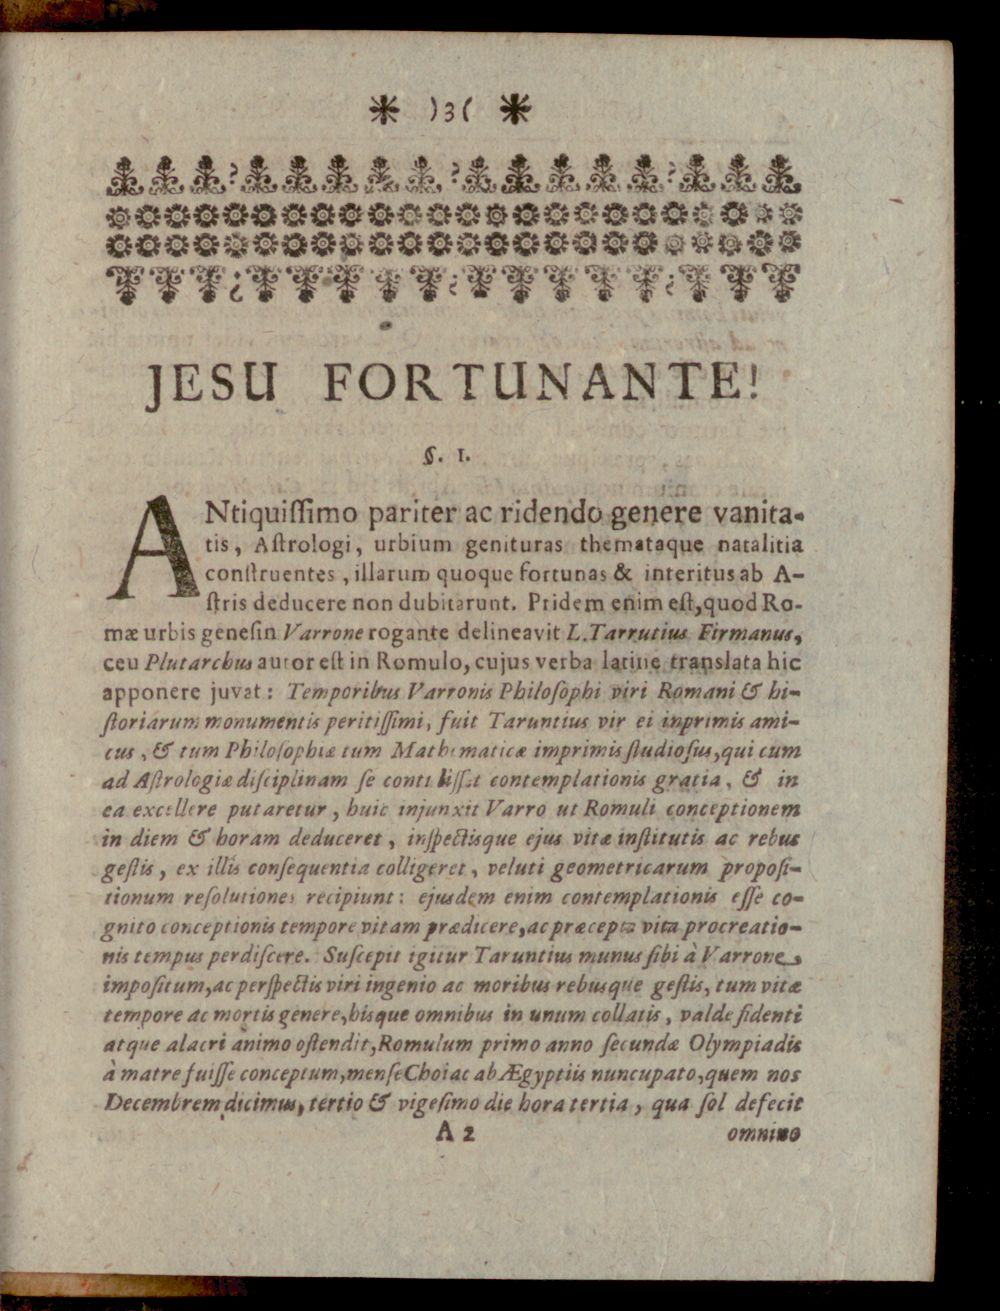 * )3( *
JESU FORTUNANTE!
§. 1.
ANtiquiſſimo pariter ac ridendo genere vanita-
tis, Aſtrologi, urbium genituras themataque natalitia
conſtruentes, illarum quoque fortunas & interitus ab A-
ſtris deducere non dubitarunt. Pridem enim eſt, quod Ro-
mæ urbis geneſin Varrone rogante delineavit L. Tarrutius Firmanus,
ceu Plutarchus autor eſt in Romulo, cujus verba latine translata hic
apponere juvat: Temporibus Varronis Philoſophi viri Romani & hi-
ſtoriarum monumentis peritiſſimi, fuit Taruntius vir ei inprimis ami-
cus, & tum Philoſophiæ tum Mathematicæ imprimis ſtudioſus, qui cum
ad Aſtrologiæ diſciplinam ſe contuliſſet contemplationis gratia, & in
ea excellere putaretur, huic injunxit Varro ut Romuli conceptionem
in diem & horam deduceret, inſpectisque ejus vitæ inſtitutis ac rebus
geſtis, ex illis conſequentia colligeret, veluti geometricarum propoſi-
tionum reſolutiones recipiunt: ejusdem enim contemplationis eſſe co-
gnito conceptionis tempore vitam prædicere, ac præcepta vita procreatio-
nis tempus perdiſcere. Suſcepit igitur Taruntius munus ſibi à Varrone
impoſitum, ac perſpectis viri ingenio ac moribus rebusque geſtis, tum vitæ
tempore ac mortis genere, hisque omnibus in unum collatis, valde fidenti
atque alacri animo oſtendit, Romulum primo anno ſecundæ Olympiadis
à matre fuiſſe conceptum, menſe Choiac ab Ægyptiis nuncupato, quem nos
Decembrem dicimus, tertio & vigeſimo die hora tertia, qua ſol defecit
A 2 omnino